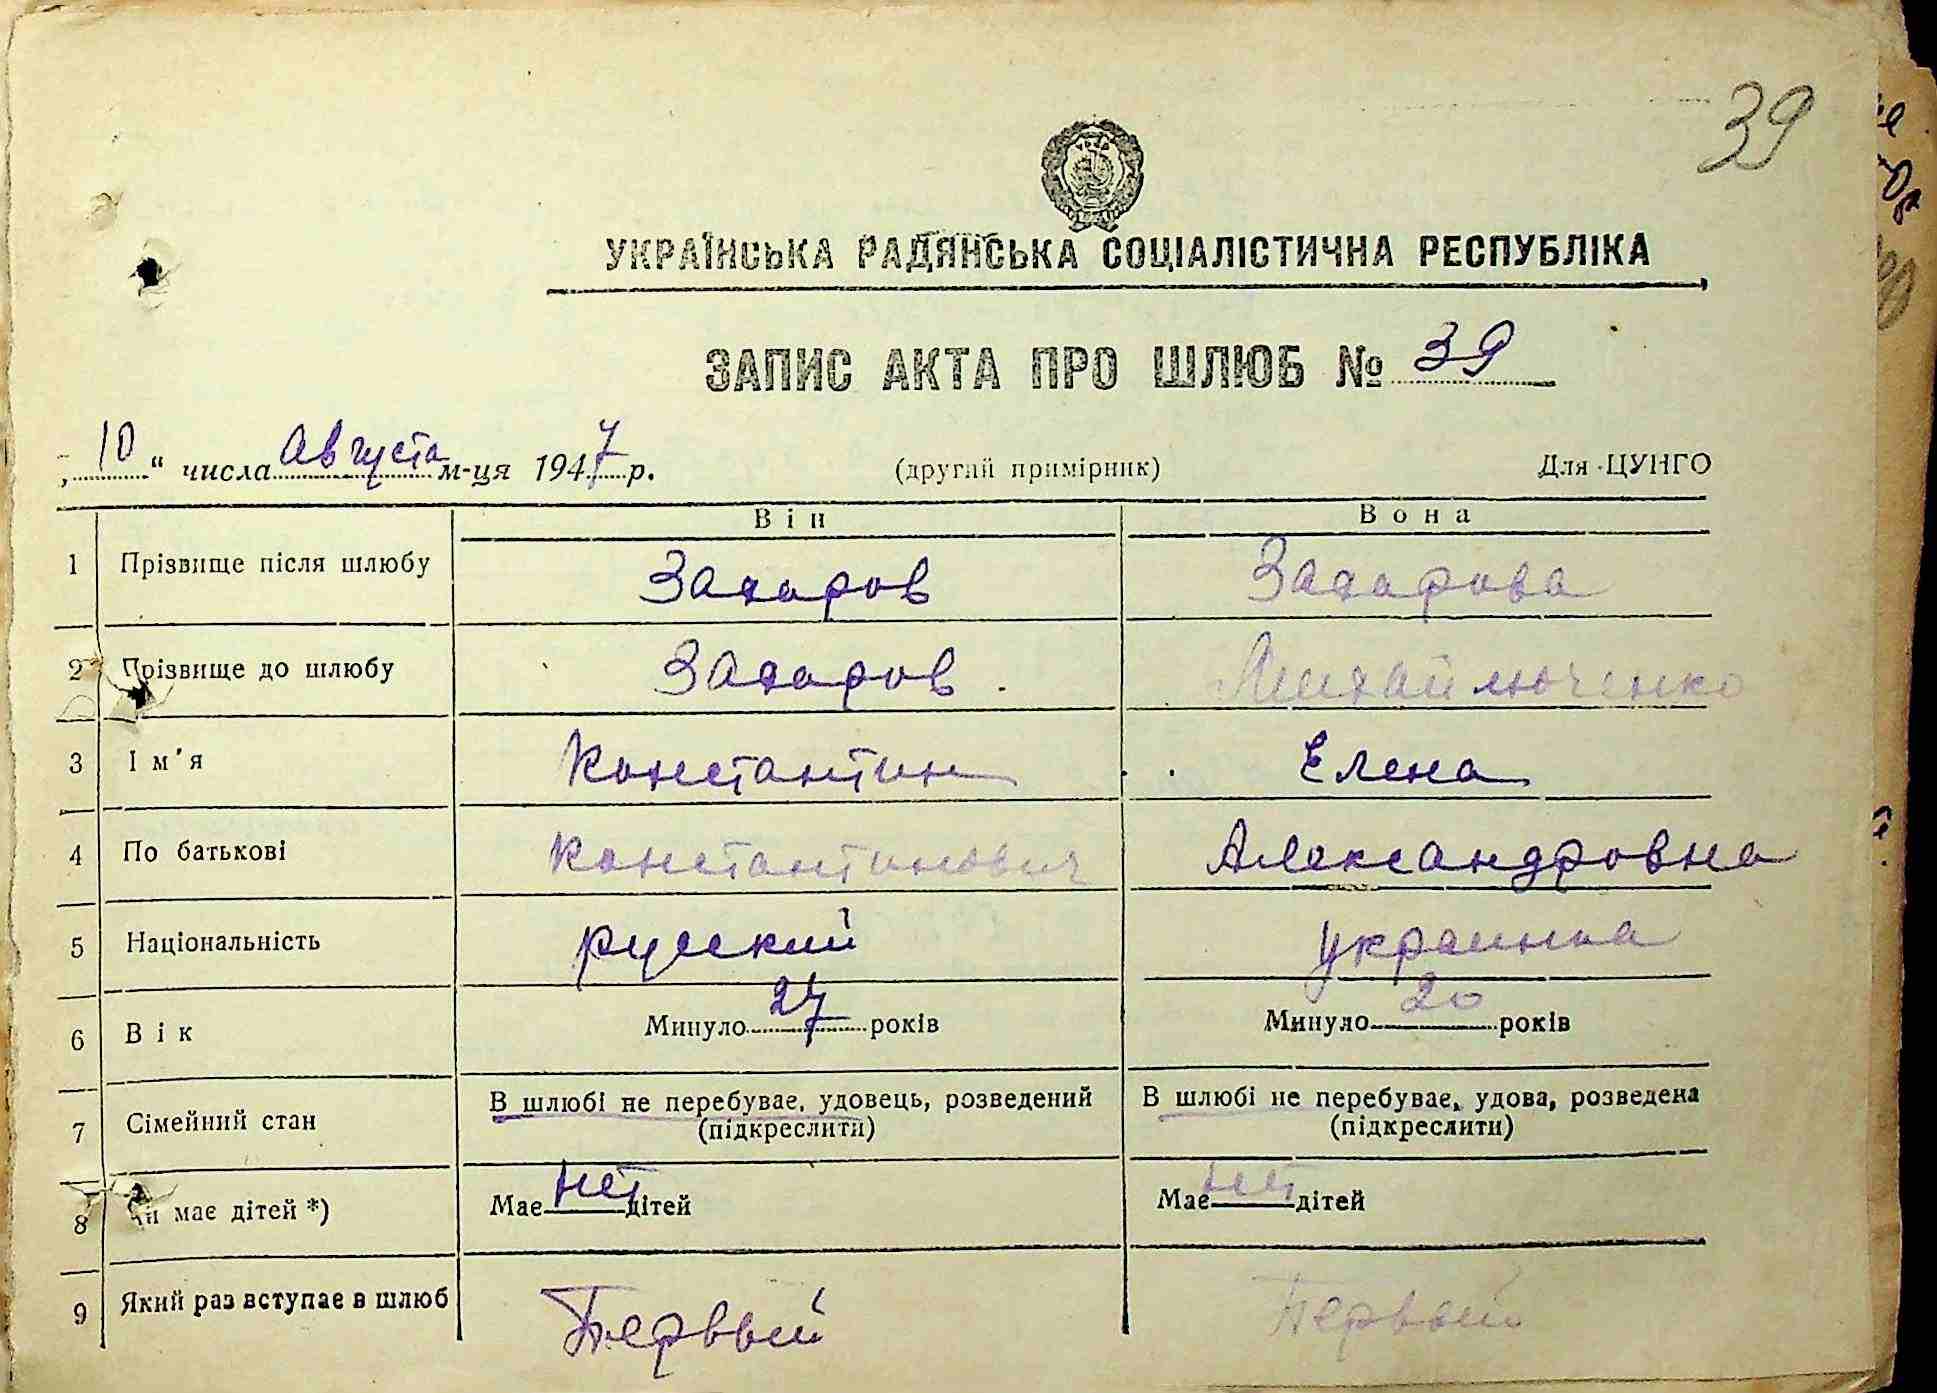 39
УКРАЇНСЬКА РАДЯНСЬКА СОЦІАЛІСТИЧНА РЕСПУБЛІКА
ЗАПИС АКТА ПРО ШЛЮБ № 39
„10“ числа Августа м-ця 1947 р. (другий примірник) Для ЦУНГО
Він Вона
1 Прізвище після шлюбу Захаров Захарова
2 Прізвище до шлюбу Захаров. Михайлюченко
3 Ім'я Константин Елена
4 По батькові Константинович Александровна
5 Національність русский украинка
6 Вік Минуло 27 років Минуло 20 років
7 Сімейний стан В шлюбі не перебуває, удовець, розведений (підкреслити) В шлюбі не перебуває, удова, розведена (підкреслити)
8 Чи має дітей *) Має нет дітей Має нет дітей
9 Який раз вступає в шлюб Первый Первый